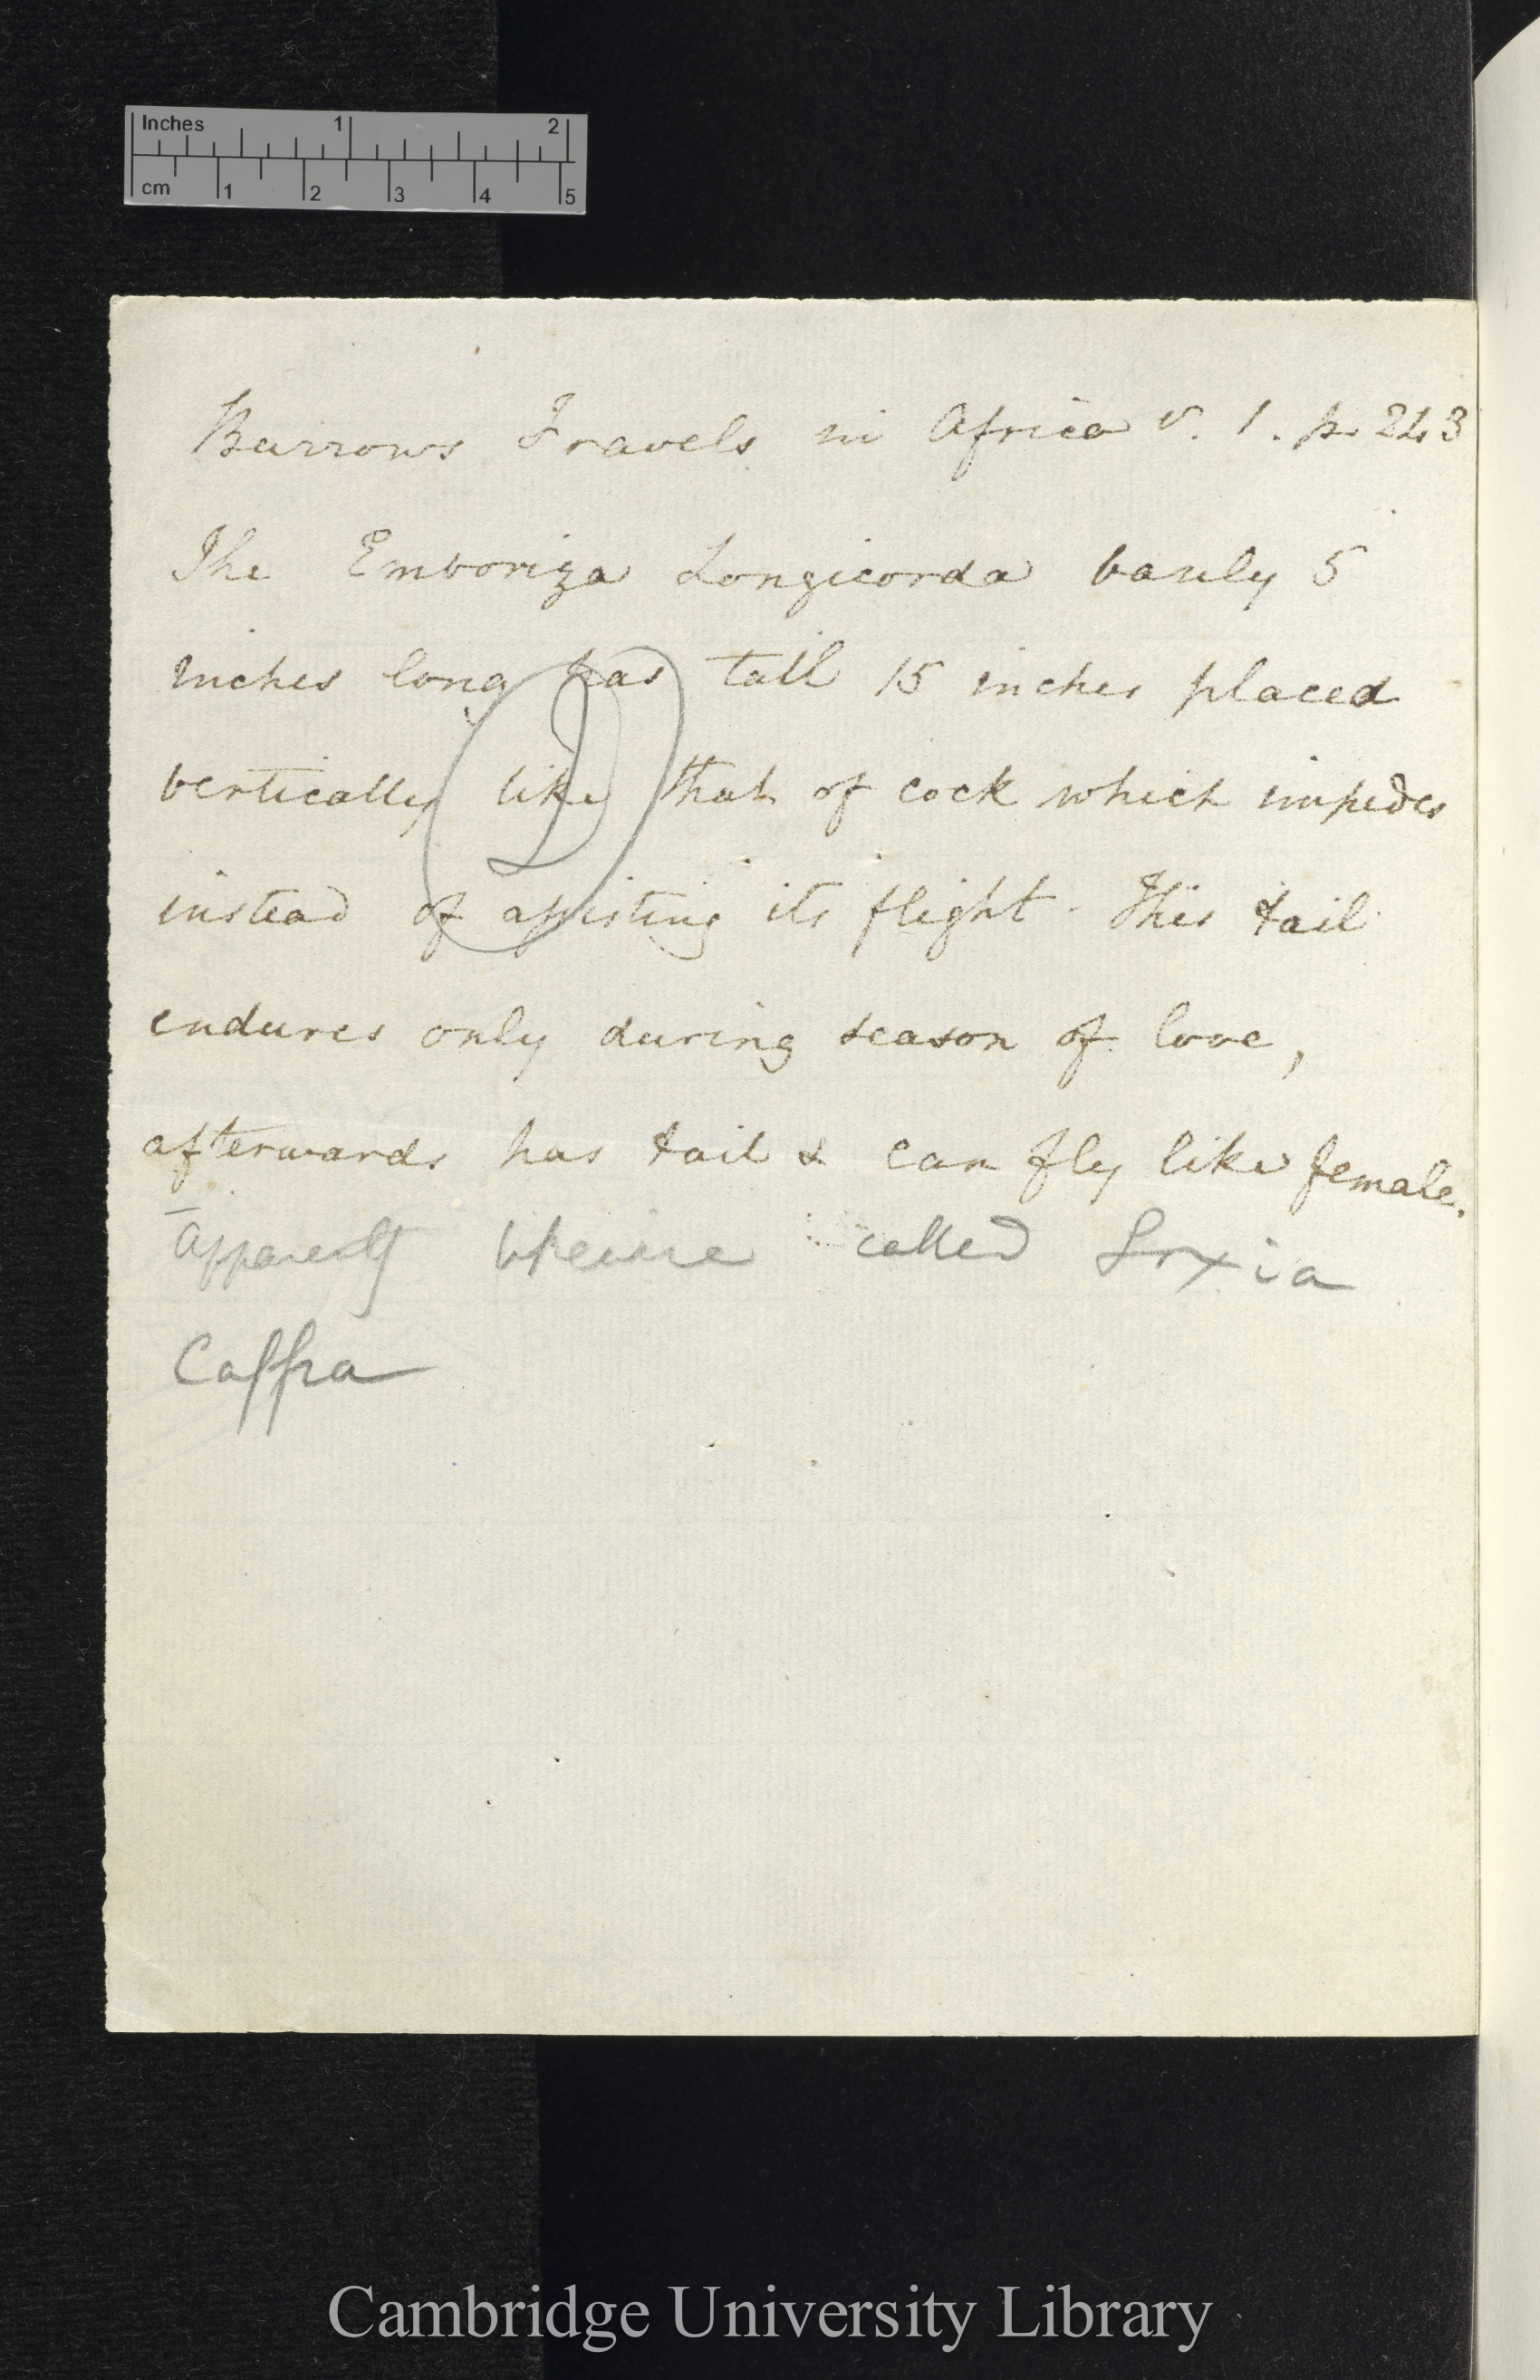 Inches 1 2
cm 1 2 3 4 5
Burrows Travels in Africa v. 1. p. 243
The Emboriza Longicorda barely 5
inches long has tail 15 inches placed
vertically like that of cock which impedes
instead of assisting its flight - This tail
endures only during season of love,
afterwards has tail & can fly like female.
Apparently called Loxia
Caffra
D
Cambridge University Library